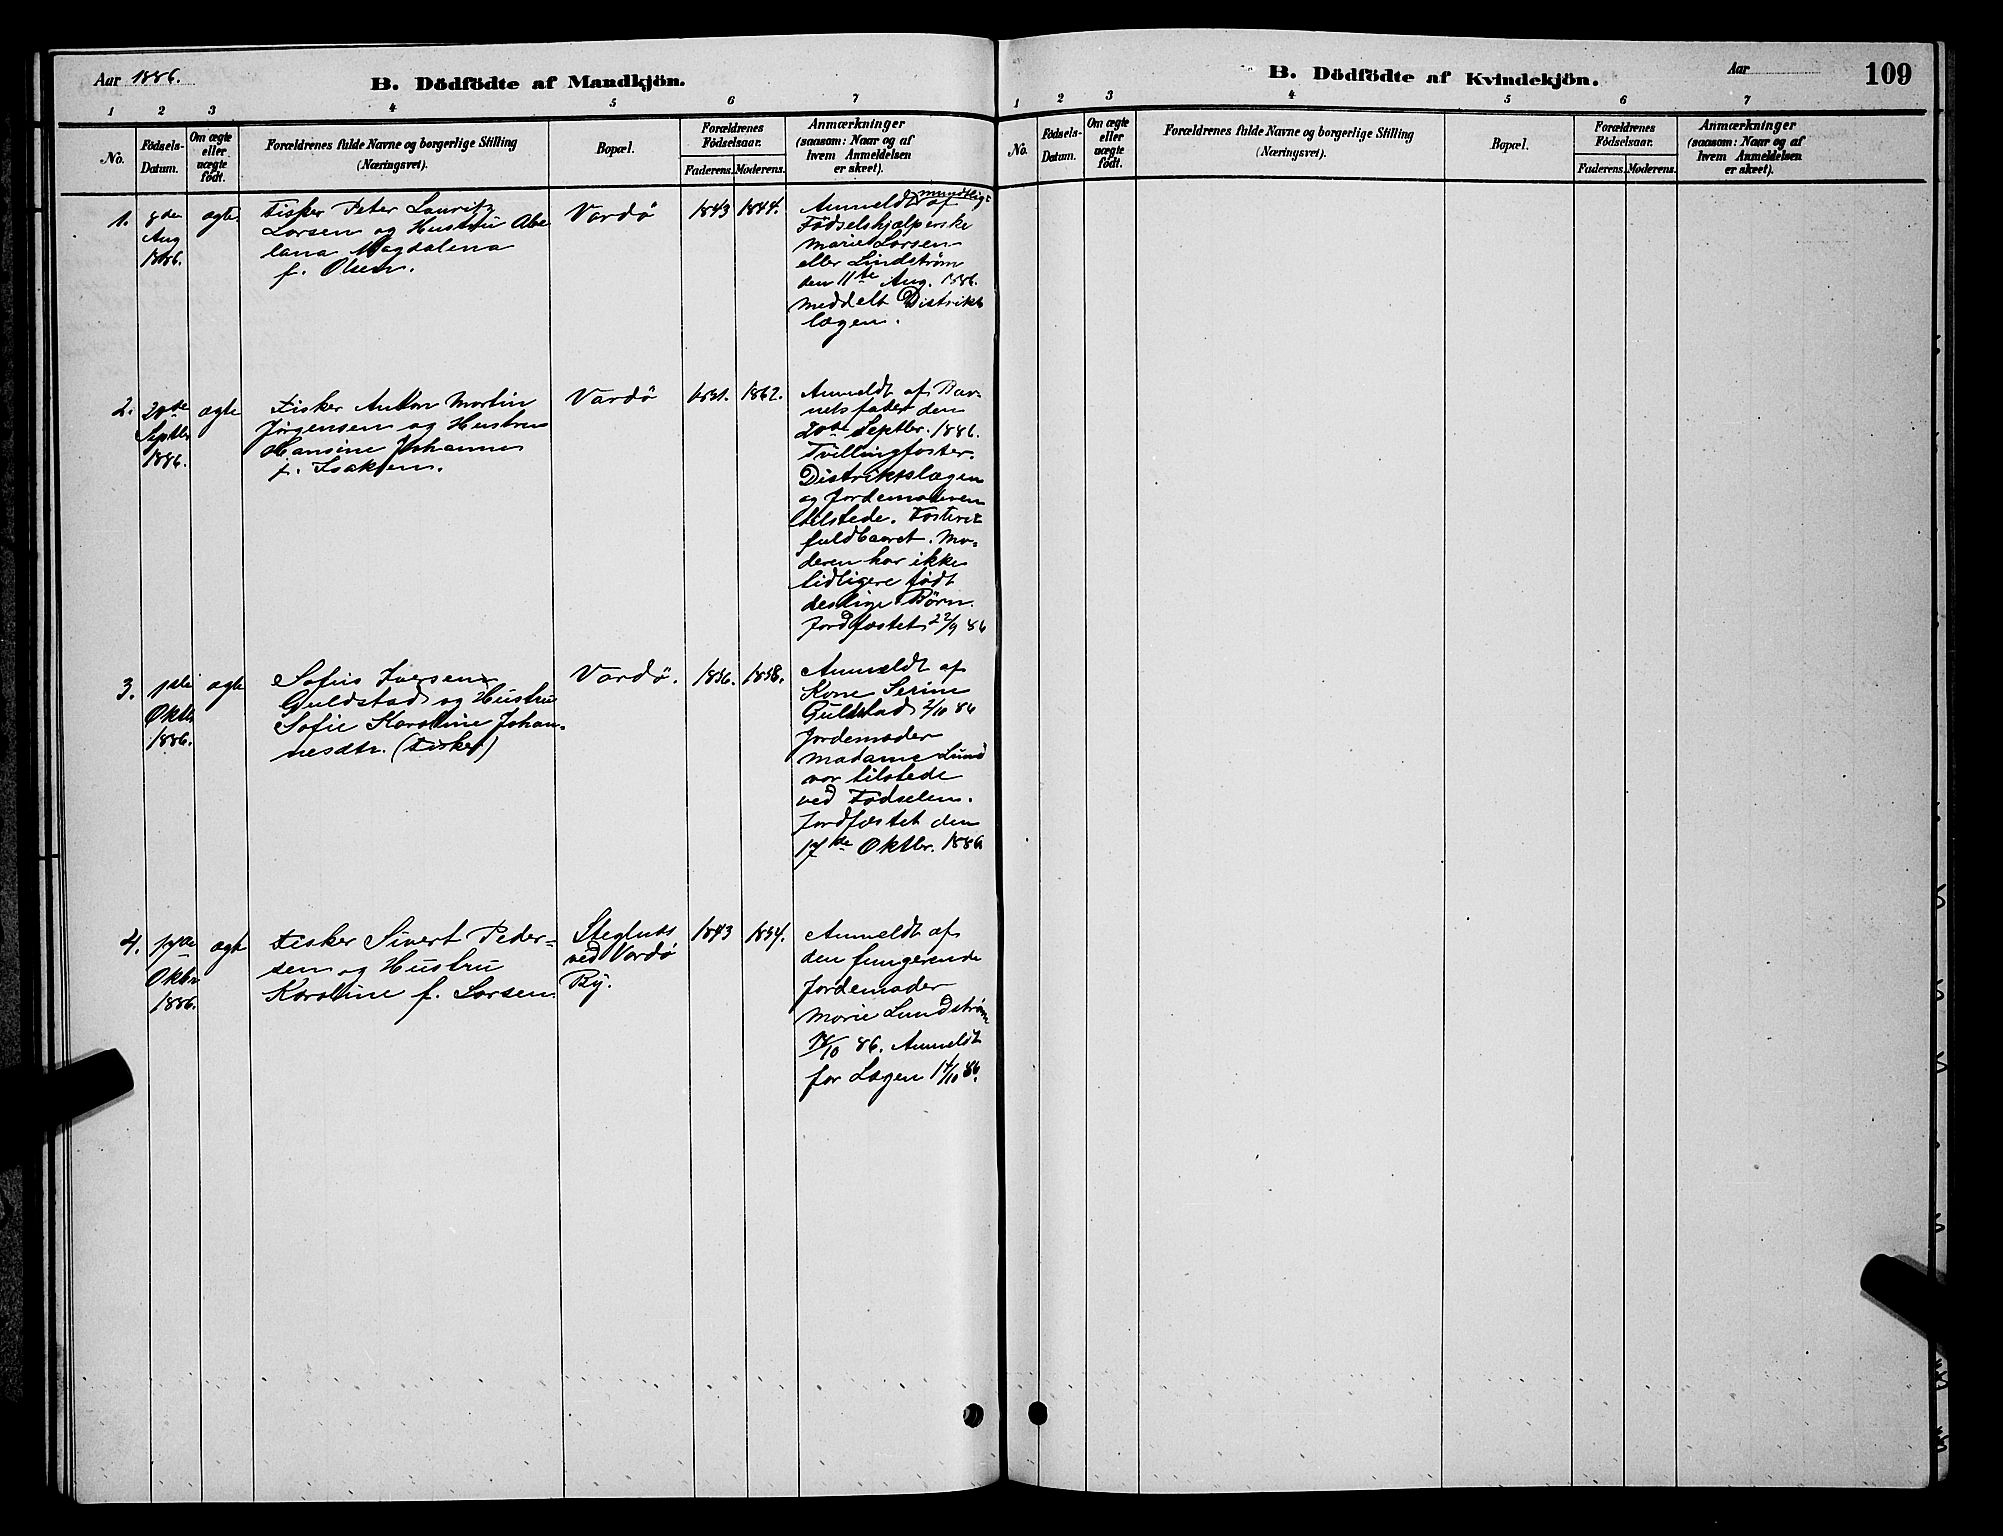 Aar 1886.
B. Dödfödte af Mandkjön.
1 2 3 4 5 6 7
No.
Födsels-
Datum.
Om ægte
eller
uægte
födt.
Forældrenes fulde Navne og borgerlige Stilling
(Næringsvei).
Bopæl.
Forældrenes
Födselsaar.
Faderens. Moderens.
Anmærkninger
(saasom: Naar og af
hvem Anmeldelsen
er skeet).
1.
8de
Aug
1886.
ægte
Fisker Peter Lauritz
Larsen og Hustru Abe
lana Magdalena
f. Olsen.
Vardö
1843
1844.
Anmeldt mundtligt af
Födselshjælperske
Marie Larsen
eller Lindstrøm
den 11te Aug. 1886.
Meddelt Distrikts
lægen.
2.
20de
Septbr
1886.
ægte
Fisker Anton Martin
Jørgensen og Hustru
Hansine Johanne
f. Isaksen.
Vardö
1862.
Anmeldt af Bar-
nets fader den
20de Septbr. 1886.
Tvillingfoster.
Distriktslægen
og Jordemoderen
tilstede. Fosteret
fuldbaaret. Mo-
deren har ikke
tidligere födt
deslige Børn.
Jordfæstet 22/9 86
3.
1ste
Oktbr
1886.
ægte
Sofus Iversen
Guldstad og Hustru
Sofie Karoline Johan-
nesdtr. (Fisker)
Vardö.
1856.
1858.
Anmeldt af
Kone Serine
Guldstad 2/10 86
Jordemoder
Madame Lund
var tilstede
ved Födselen.
Jordfæstet den
17de Oktbr. 1886
4.
Oktbr
1886.
ægte
Fisker Sivert Peder-
sen og Hustru
Karoline f. Larsen
Stegluss
ved Vardö
By.
1843
1854.
Anmeldt af
den fungerende
Jordemoder
Marie Lundstrøm
/10 86. Anmeldt
for Lægen 14/10 86.
B. Dödfödte af Kvindekjön.
Aar
109
1 2 3 4 5 6 7
No.
Födsels-
Datum.
Om ægte
eller
uægte
födt.
Forældrenes fulde Navne og borgerlige Stilling
(Næringsvei).
Bopæl.
Forældrenes
Födselsaar.
Faderens. Moderens.
Anmærkninger
(saasom: Naar og af
hvem Anmeldelsen
er skeet).